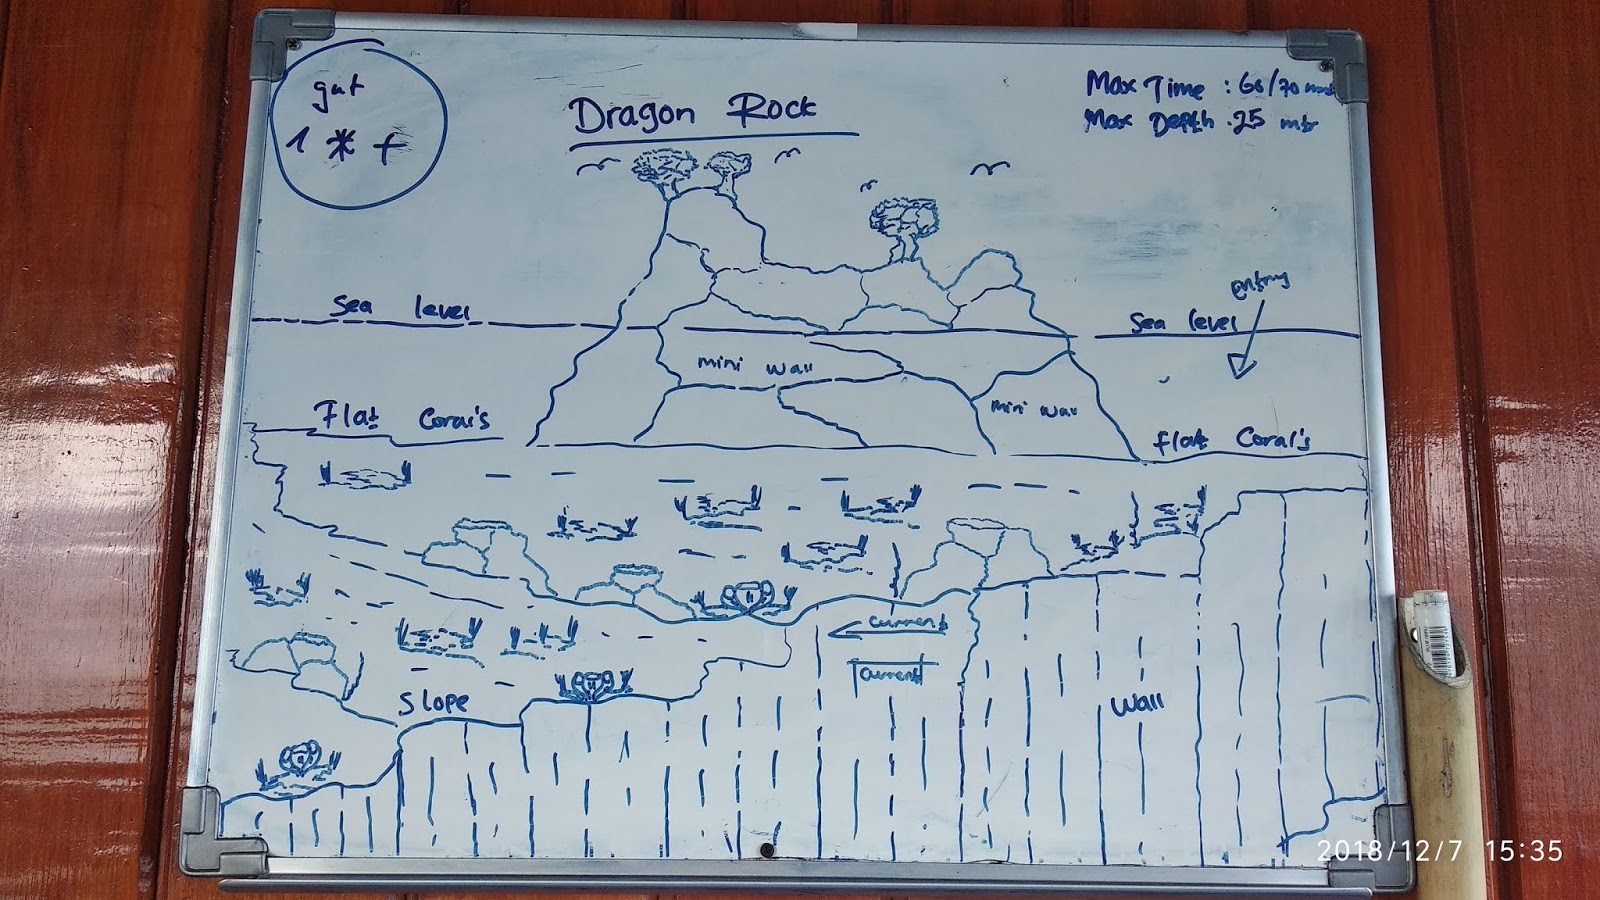 gut
1 * +
Dragon Rock
Max Time : 60/70
Max Depth : 25 mtr
Entry
Sea level
Sea level
mini wall
mini wall
Flat Coral's
flat Coral's
current
current
Slope
Wall
2018/12/7 15:35